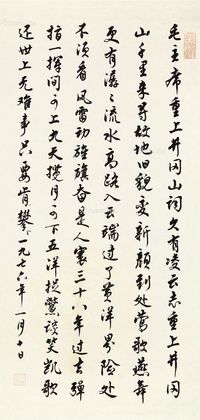 毛主席重上井冈山词久有凌云志重上井冈
山千里来寻故地旧貌变新颜到处莺歌燕舞
更有潺〻流水高路入云端过了黄洋界险处
不须看风雷动旌旗奋是人寰三十八年过去弹
指一挥间可上九天揽月可下五洋捉鳖谈笑凯歌
还世上无难事只要肯攀一九七六年一月十日